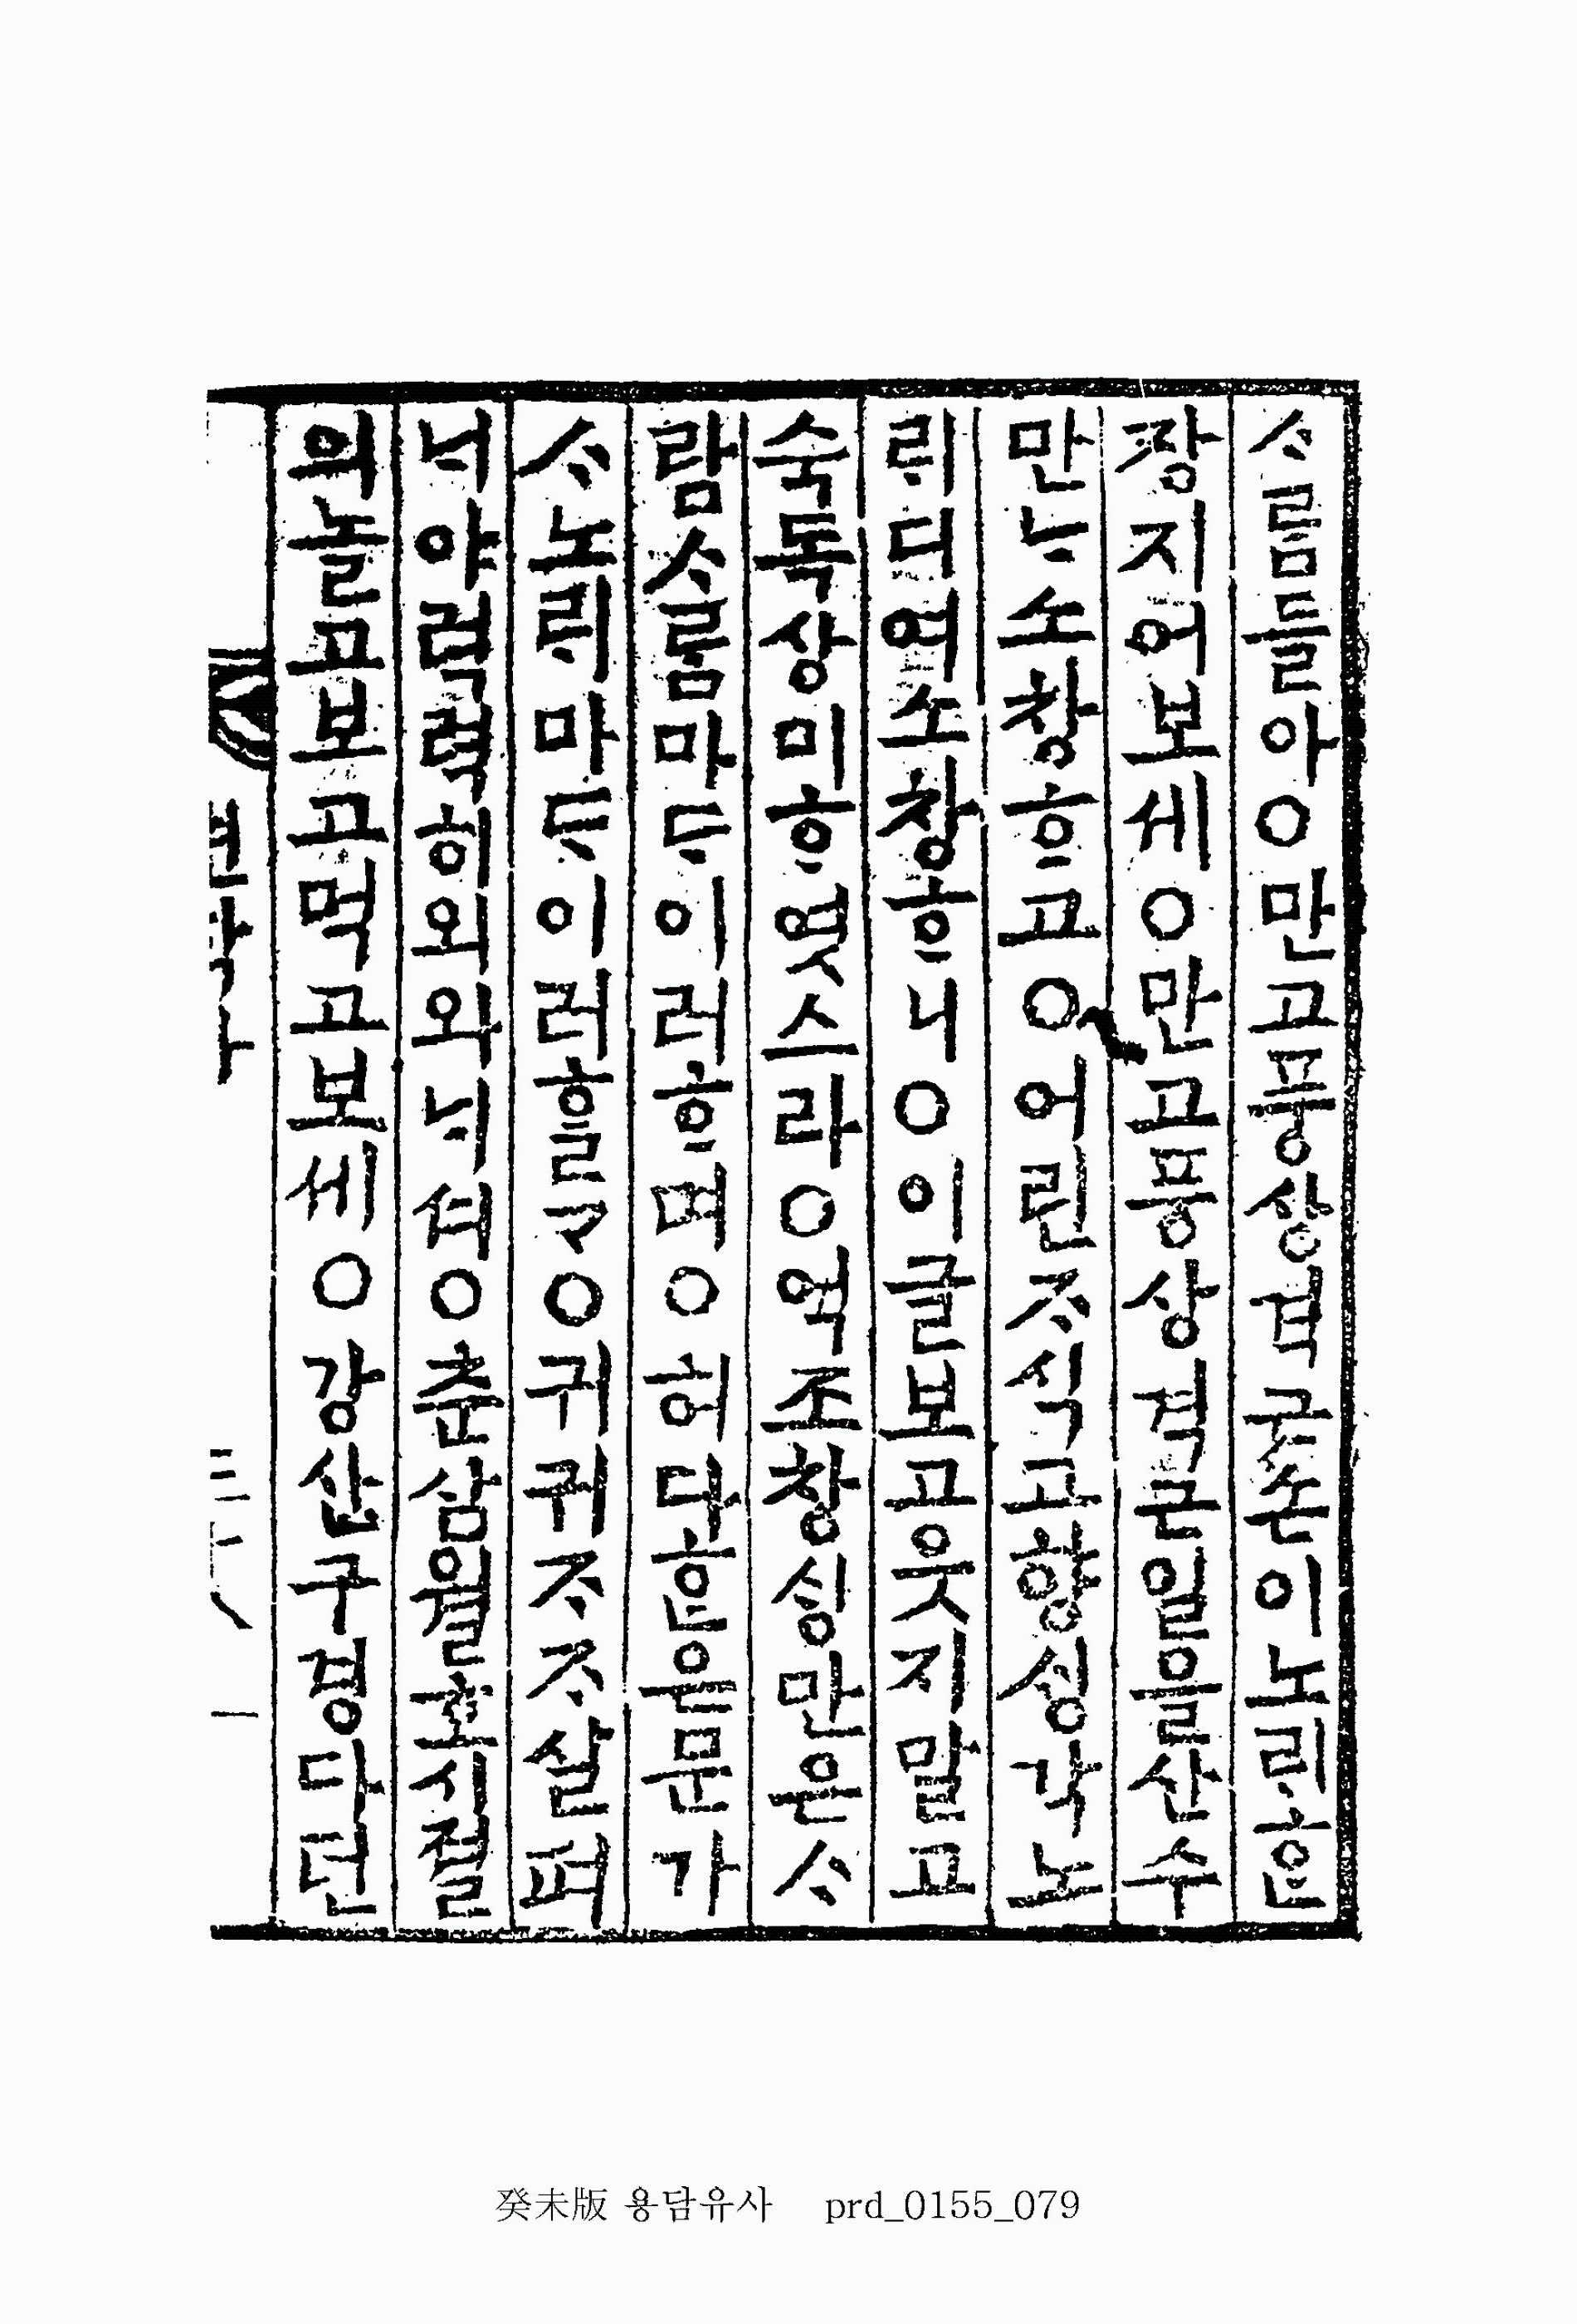 ᄉᆞ름들아○만고풍상겪근손이노ᄅᆡᄒᆞᆫ
쟝지어보세○만고풍상격근일을산수
만ᄂᆞ소창ᄒᆞ고○어린ᄌᆞ식고향ᄉᆡᆼ각노
ᄅᆡ디여소창ᄒᆞ니○이글보고웃지말고
숙독상미ᄒᆞ엿스라○억조창ᄉᆡᆼ만은ᄉᆞ
람ᄉᆞ룸마ᄃᆞ이러ᄒᆞ며○허다ᄒᆞᆫ은문가
ᄉᆞ노ᄅᆡ마ᄃᆞ이러ᄒᆞᆯᄀᆞ○귀귀ᄌᆞᄌᆞ살펴
ᄂᆡ야력력히외와ᄂᆡ셔○춘삼월호시졀
의놀고보고먹고보세○강산구경다던
三十
一
癸未版 용담유사 prd_0155_079